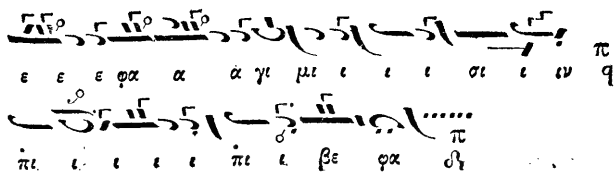 ε ε ε φα α ά γι μι ι ι ι σι ι ιν π q
πι ι ι ι ι πι ι βε φα π δι